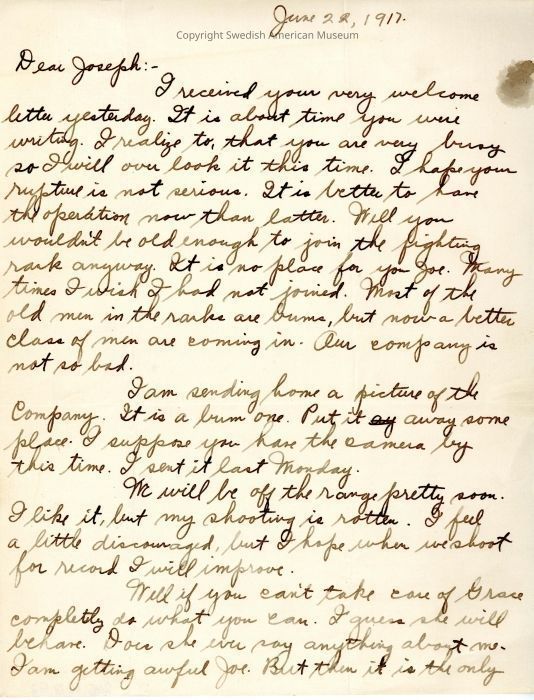 June 22, 1917.
Copyright Swedish American Museum
Dear Joseph:-
I received your very welcome
letter yesterday. It is about time you were
writing. I realize to, that you are very busy
so I will over look it this time. I hope your
rupture is not serious. It is better to have
the operation now than latter. Will you
wouldn't be old enough to join the fighting
rank anyway. It is no place for you Joe. Many
times I wish I had not joined. Most of the
old men in the ranks are bums, but now a better
class of men are coming in. Our company is
not so bad.
I am sending home a picture of the
Company. It is a bum one. Put it away some
place. I suppose you have the camera by
this time. I sent it last Monday.
We will be off the range pretty soon.
I like it, but my shooting is rotten. I feel
a little discouraged, but I hope when we shoot
for record I will improve.
Well if you can't take care of Grace
completly do what you can. I guess she will
behave. Does she ever say anything about me.
I am getting awful Joe. But then it is the only